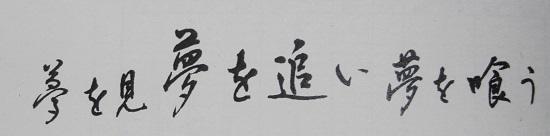 夢を見夢を追い夢を喰う